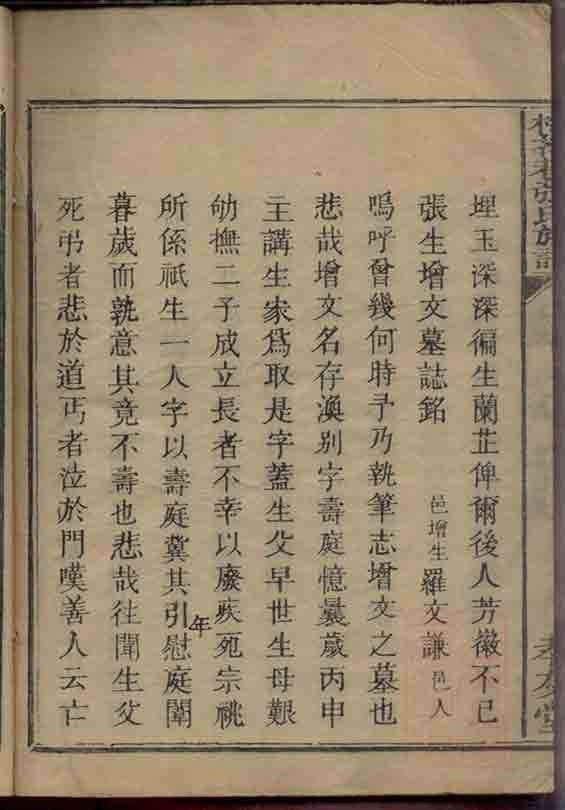 埋玉深深徧生蘭芷俾爾後人芳徽不已
張生增文墓誌銘 邑增生羅文謙邑人
嗚呼曾幾何時予乃執筆志增文之墓也
悲哉增文名存渙别字壽庭憶曩歲丙申
主講生家爲取是字葢生父早世生母艱
劬撫二子成立長者不幸以廢疾死宗祧
所係祇生一人字以壽庭冀其引年慰庭闈
暮歲而孰意其竟不壽也悲哉往聞生父
死弔者悲於道丐者泣於門嘆善人云亡
張氏族譜
孝友堂